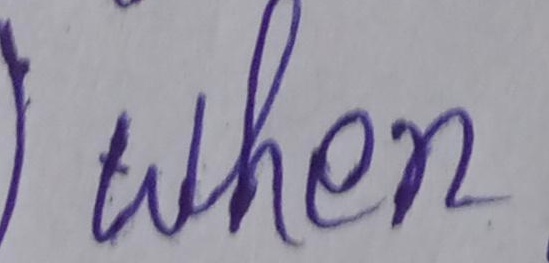 ) when